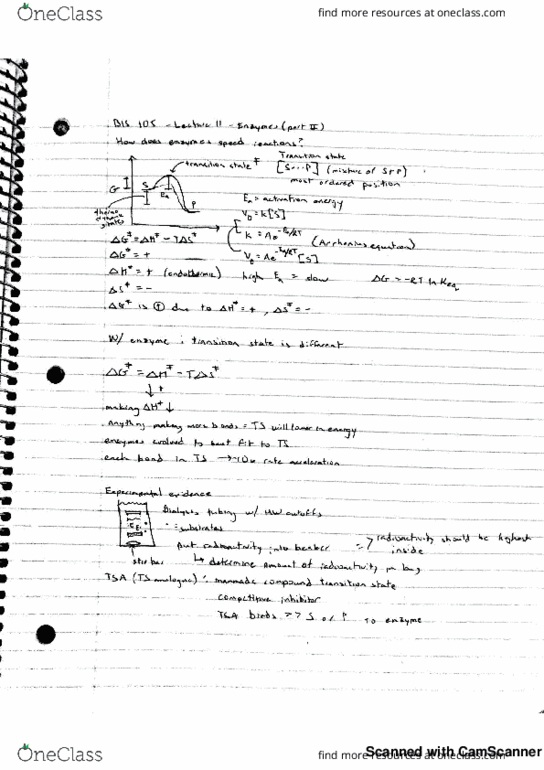 OneClass
find more resources at oneclass.com
BIS 105 - Lecture 11 - Enzymes (part II)
How does enzymes speed reactions?
transition state ‡
Transition state
[S---P] (mixture of S + P)
most ordered position
G
S
Ea
P
Ea = activation energy
V₀ = k[S]
k = Ae^-Ea/RT
(Arrhenius equation)
V₀ = Ae^-Ea/RT [S]
ΔG‡ = ΔH‡ - TΔS‡
ΔG‡ = +
ΔH‡ = + (endothermic)
high Ea = slow
ΔG = -RT ln Keq
ΔS‡ = -
ΔG‡ is + due to ΔH‡ = +, ΔS‡ = -
W/ enzyme : transition state is different
ΔG‡ = ΔH‡ - TΔS‡
making ΔH‡ ↓
Anything making more bonds = TS will lower in energy
enzymes evolved to best fit to TS
each bond in TS → 10x rate acceleration
Experimental evidence
Dialysis tubing w/ MW cutoffs
= substrates
put radioactivity into beaker
=> radioactivity should be highest
inside
stir bar
↳ determine amount of radioactivity in bag
TSA (TS analogue) : manmade compound transition state
competitive inhibitor
TSA binds >> S or P to enzyme
OneClass
find more resources at oneclass.com
Scanned with CamScanner